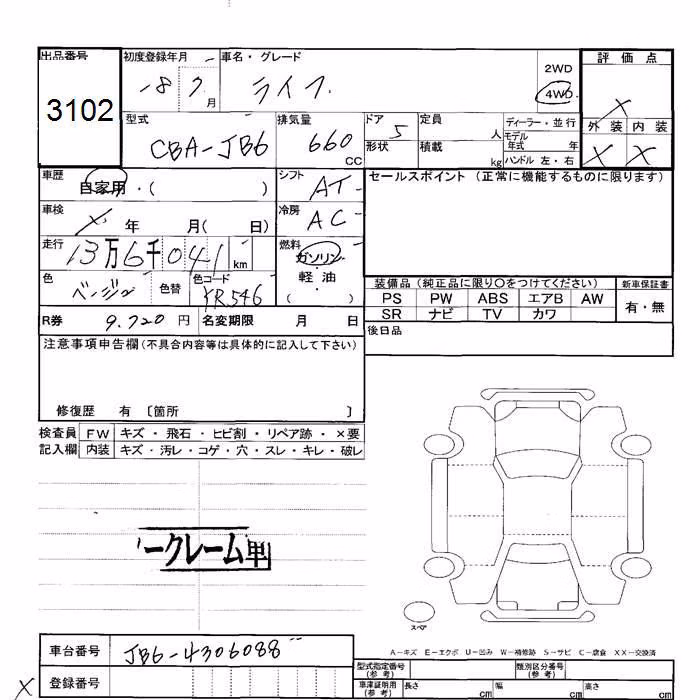 出品番号 初度登録年月 車名・グレード 2WD 4WD 評価点
3102 18 7 月 ライフ X
型式 CBA-JB6 排気量 660 CC ドア 5 形状 定員 人 積載 kg ディーラー・並行 モデル年式 年 ハンドル 左・右 外装 内装
X X
車歴 自家用・( ) シフト AT セールスポイント(正常に機能するものに限ります)
車検 X 年 月( 日) 冷房 AC
走行 13万6千041 km 燃料 ガソリン 軽・油 ( )
色 ベージュ 色替 色コード YR546
装備品(純正品に限り○をつけてください) 新車保証書
PS PW ABS エアB AW 有・無
SR ナビ TV カワ
R券 9.720 円 名変期限 月 日 後日品
注意事項申告欄(不具合内容等は具体的に記入して下さい)
修復歴 有 〔箇所 〕
検査員 FW キズ・飛石・ヒビ割・リペア跡・×要
記入欄 内装 キズ・汚レ・コゲ・穴・スレ・キレ・破レ
ークレーム車
スペア
A-キズ E-エクボ U-凹み W-補修跡 S-サビ C-腐食 XX-交換済
車台番号 JB6-4306088
X 登録番号
型式指定番号(参考) 類別区分番号(参考)
車庫証明用(参考) 長さ cm 幅 cm 高さ cm